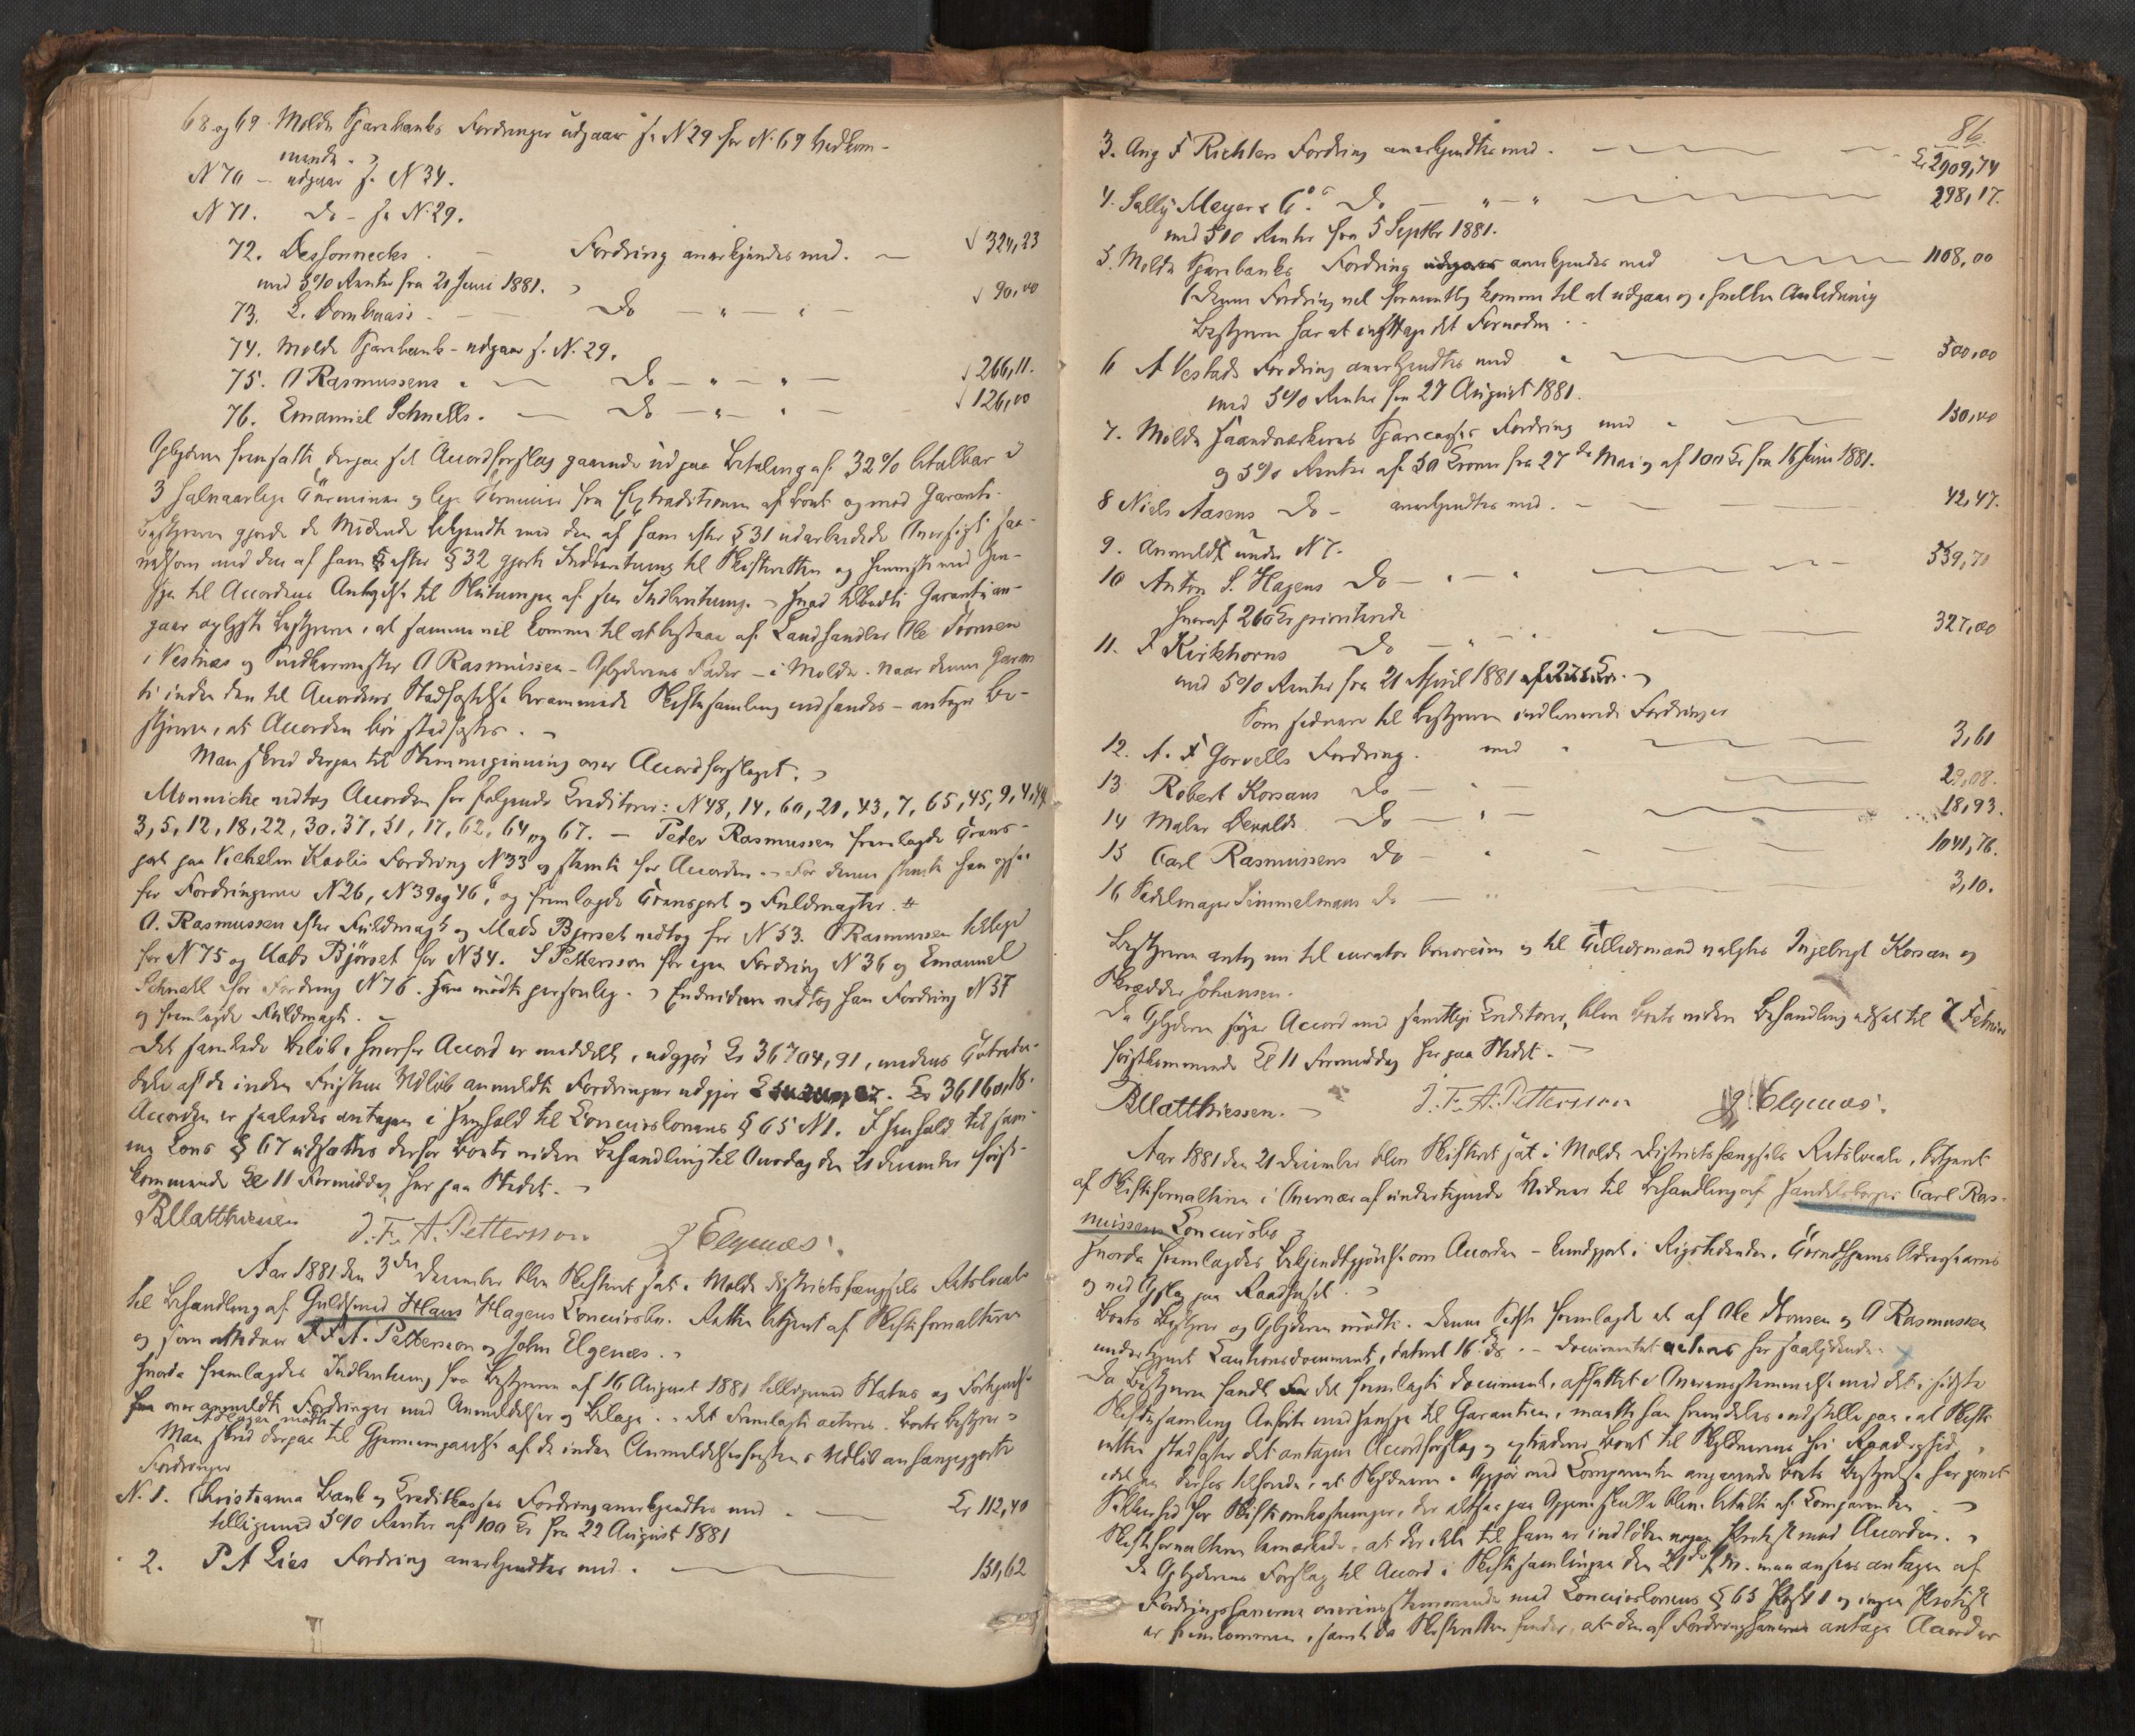 68 og 69. Molde Sparebanks Fordringer udgaar jf N 29 for N. 69 Vedkom-
mende.
N 70 – udgaar jf. N 34.
N 71. Do – jf N. 29.
72. Dessonnecks Fordring anerkjendes med. √ 324,23
med 5% Renter fra 21 Juni 1881.
73. L. Dombaais Do — " — " — √ 90,00
74. Molde Sparebank – udgaar jf. N. 29.
75. O Rasmussens Do — " — " — √ 266,11.
76. Emanuel Schnells. Do — " — " — √ 126,00
Opbyderen fremsatte derpaa sit Accordforslag gaaende ud paa Betaling af 32% betalbar i
3 halvaarlige Terminer fra Extraditionen af Boet og mod Garanti.
Bestyreren gjorde de Mødende bekjendt med den af ham efter § 31 udarbeidede Oversigt saa-
velsom med den af ham efter § 32 gjorte Indberetning til Skifteretten og henviste med Hen-
syn til Accordens Antagelse til Slutningen af sin Indberetning. – Hvad tilbudte Garanti an-
gaar oplyste Bestyreren, at samme vil komme til at bestaae af Landhandler Ole Iversen
i Vestnæs og Snedkermester O Rasmussen – Opbyderens Fader – i Molde. Naar denne Garan-
ti inden den til Accordens Stadfæstelse berammede Skiftesamling indsendes – antager Be-
styreren, at Accorden bør stadfæstes.
Man skred derpaa til Stemmegivning over Accordforslaget.
Monniche vedtog Accorden for følgende Creditorer: N 48, 14, 60, 21, 43, 7, 65, 45, 9, 4, 44
3, 5, 12, 18, 22, 30, 37, 51, 17, 62, 64 og 67. — Peder Rasmussen fremlagde Trans-
port paa Vilhelm Kavlis Fordring N 33 og stemte for Accorden. – For denne stemte han ogsaa
for Fordringerne N 26, N 39 og 46, og fremlagde Transport og Fuldmagter.
O. Rasmussen efter Fuldmagt og Mads Bjørset vedtog for N 53. O Rasmussen tillige
for N 75 og Mads Bjørset for N 54. S Pettersson for egen Fordring N 36 og Emanuel
Schnell for Fordring N 76. Han mødte personlig. Endvidere vedtog han Fordring N 37
og fremlagde Fuldmagt.
Det samlede Beløb, hvorfor Accord er meddelt, udgjør Kr 36704,91, medens Totalbe-
løbet af de inden Fristens Udløb anmeldte Fordringer udgjør Kr 36160,18.
Accorden er saaledes antagen i Henhold til Concurslovens § 65 N 1. I Henhold til sam-
me Lovs § 67 udsættes derfor Boets videre Behandling til Onsdag den 21 December først-
kommende Kl 11 Formiddag her paa Stedet.
P. Matthiessen J. F. A. Pettersson J Elgenæs.
Aar 1881 den 3die December blev Skifteret sat i Molde Districtsfængsels Retslocale
til Behandling af Guldsmed Hans Hagens Concursbo. Retten betjent af Skifteforvalteren
og som Vidner J. F. A. Pettersson og John Elgenæs.
Hvorda fremlagdes Indberetning fra Bestyreren af 16 August 1881 tilligemed Status og Fortegnelse
over anmeldte Fordringer med Anmeldelser og Bilage. – Det Fremlagte acteres. Boets Bestyrer
A Hagen mødte
Man skred derpaa til Gjennemgaaelse af de inden Anmeldelsesfristens Udløb anhængiggjorte
Fordringer
N. 1. Christiania Bank og Creditkasses Fordring anerkjendtes med Kr 112,40
tilligemed 5% Renter af 100 Kr fra 22 August 1881
2. P A Lies Fordring anerkjendtes med. 151,62
86.
3. Aug F Richters Fordring anerkjendtes med. Kr 2909,74
4. Sally Meyer & Co. Do — " — " 298,17.
med 5% Renter fra 5 Septbr 1881.
5. Molde Sparebanks Fordring anerkjendes med 1108,00
(Denne Fordring vil formentlig komme til at udgaa og i hvilken Anledning
Bestyreren har at iagttage det Fornødne.
6 A Vestads Fordring anerkjendtes med 500,00
med 5% Renter fra 27 August 1881.
7. Molde Haandværkeres Sparecasses Fordring med 150,00
og 5% Renter af 50 Kroner fra 27de Mai og af 100 Kr fra 16 Juni 1881.
8 Niels Aasens Do – anerkjendtes med. 42,47.
9. Anmeldt under N 7.
10 Anton S. Hagens Do – " – " 539,70
hvoraf 260 Kr prioriterede
11. F Kirkhorns Do — " — 327,00
med 5% Renter fra 21 April 1881
Som senere til Bestyreren indleverede Fordringer
12. A. F Gorvells Fordring. med 3,61
13 Robert Korsans Do – 29,08.
14 Maler Devolds Do – 18,93.
15 Carl Rasmussens Do – 1041,76.
16 Sadelmager Simmelmans Do – 3,10.
Bestyreren antog nu til curator bonorum og til Tillidsmænd valgtes Ingebrigt Korsan og
Skrædder Johansen.
Da Opbyderen søger Accord med samtlige Creditorer, blev Boets videre Behandling udsat til 7 Februar
førstkommende Kl 11 Formiddag her paa Stedet.
P. Matthiessen. J. F. A. Pettersson J. Elgenæs.
Aar 1881 den 21 December blev Skifteret sat i Molde Districtsfængsels Retslocale, betjent
af Skifteforvalteren i Overvær af undertegnede Vidner til Behandling af Handelsborger Carl Ras-
mussens Concursbo
Hvorda fremlagdes Bekjendtgjørelse om Accorden – kundgjort i Rigstidenden, Trondhjems Adresseavis
og ved Opslag paa Raadhuset.
Boets Bestyrer og Opbyderen mødte. Denne sidste fremlagde et af Ole Iversen og O Rasmussen
undertegnet Cautionsdocument, dateret 16 ds. – Documentet acteres her saalydende.
Da Bestyreren fandt det fremlagte Document, affattet i Overensstemmelse med det i sidste
Skiftesamling Anførte med Hensyn til Garantien, maatte han fremdeles indstille paa, at Skifte-
retten stadfæster det antagne Accordforslag og extraderer Boet til Skyldnerens frie Raadighed,
idet han derhos tilføiede, at Skyldneren i Opgjør med Comparenten angaaende Boets Bestyrelse har givet
Sikkerhed for Skifteomkostninger, der altsaa paa Opgjør skulle blive betalte af Comparenten.
Skifteforvalteren bemærkede, at der ikke til ham er indløben nogen Protest mod Accorden.
Da Opbyderens Forslag til Accord i Skiftesamlingen den 21de f. M. maa ansees antagen af
Fordringshaverne overensstemmende med Concurslovens § 65 Post 1 og ingen Protest
er fremkommen, samt da Skifteretten finder, at den af Fordringshaverne antagne Accord er